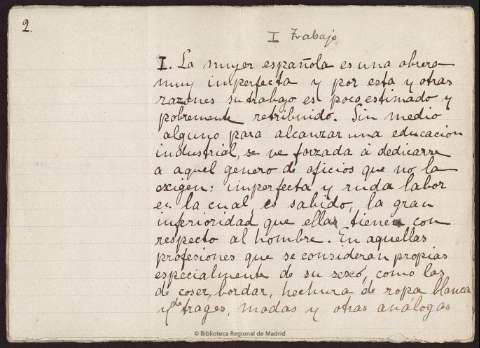 2.
I Trabajo
I. La mujer española es una obrera
muy imperfecta y por esta y otras
razones su trabajo es poco estimado y
pobremente retribuido. Sin medio
alguno para alcanzar una educacion
industrial, se ve forzada á dedicarse
a aquel genero de oficios que no la
exigen: imperfecta y ruda labor
en la cual es sabido, la gran
inferioridad que ellas tienen con
respecto al hombre. En aquellas
profesiones que se consideran propias
especialmente de su sexo, como las
de coser, bordar, hechura de ropa blanca
y de trages, modas y otras análogas
© Biblioteca Regional de Madrid